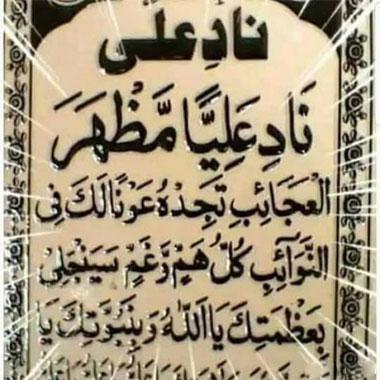 نادِ علی
نَادِ عَلِيًّا مَّظْهَرَ
الْعَجَائِبِ تَجِدْهُ عَوْنًا لَكَ فِي
النَّوَآئِبِ كُلُّ هَمٍّ وَّغَمٍّ سَيَنْجَلِيْ
بِعَظَمَتِكَ يَا اَللّٰهُ وَبِنُبُوَّتِكَ يَا